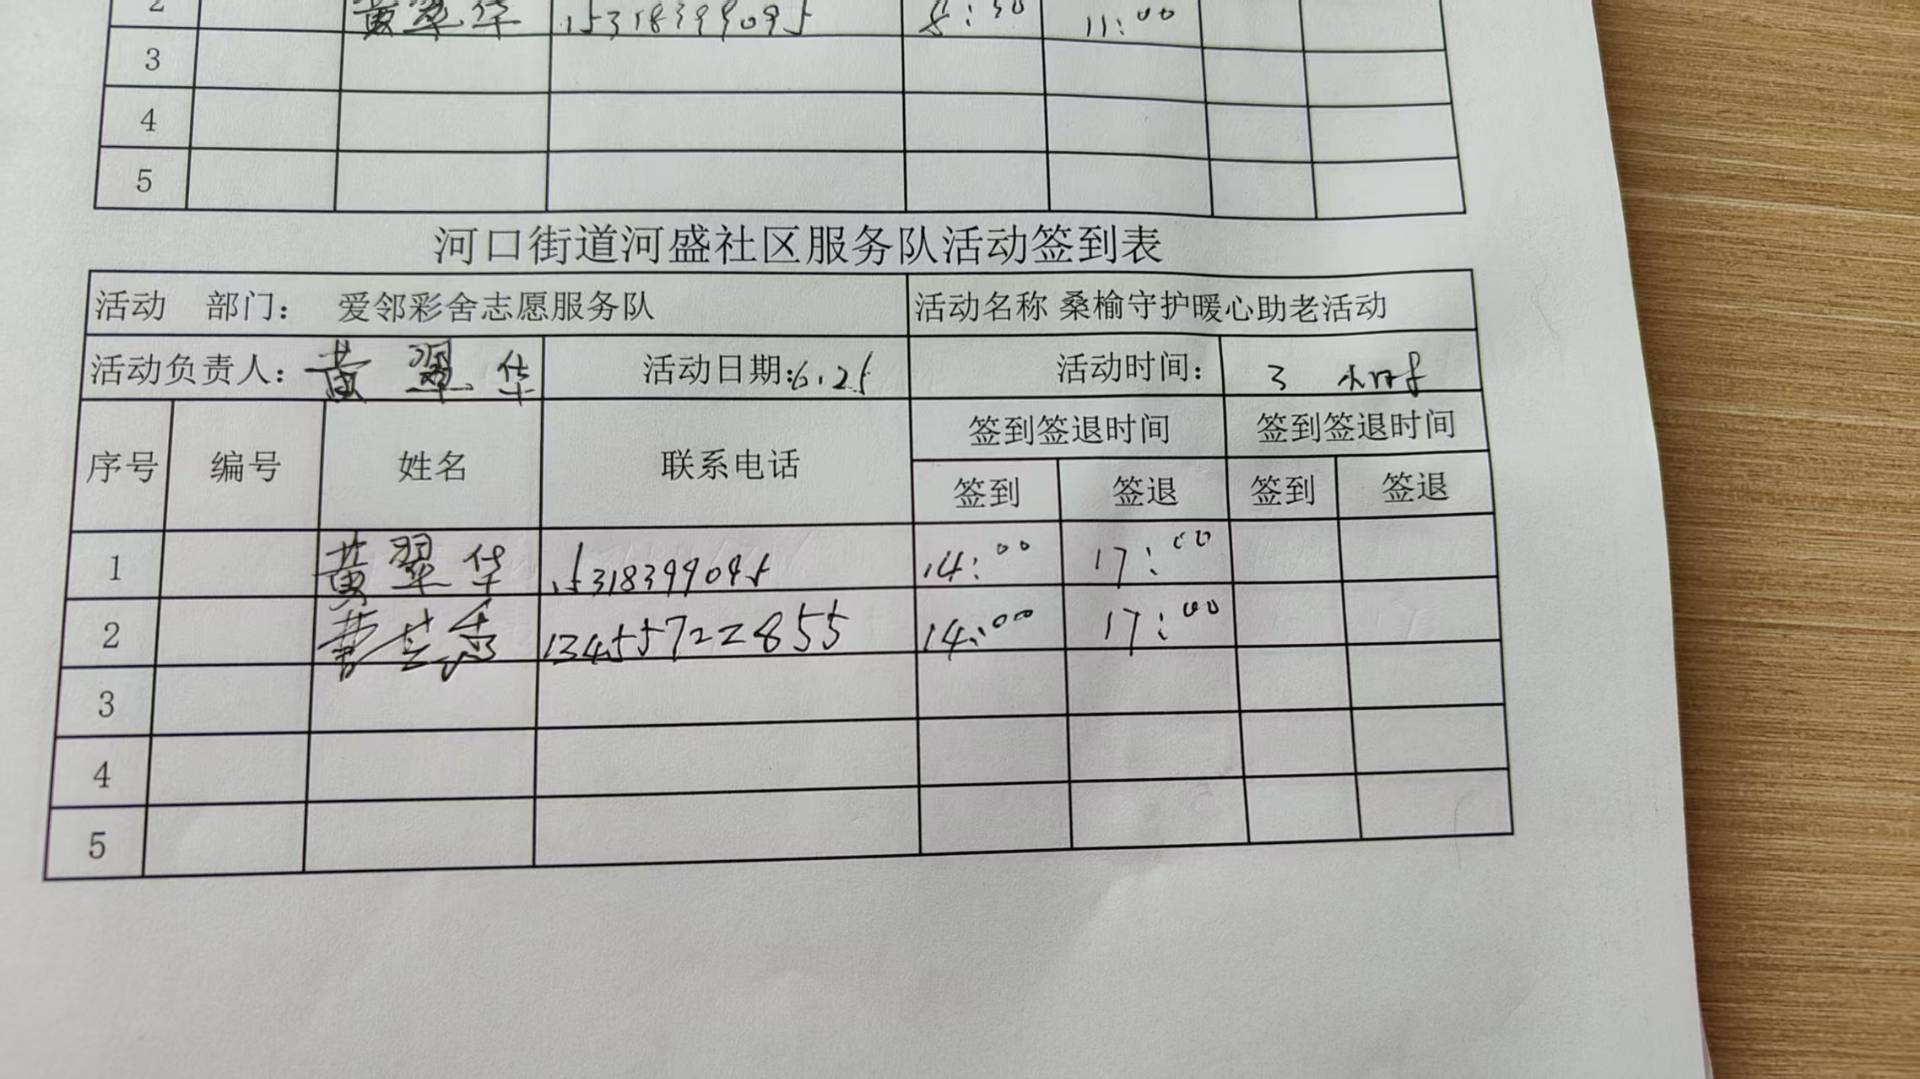 2 黄翠华 15318399095 8:30 11:00
3
4
5
河口街道河盛社区服务队活动签到表
活动 部门： 爱邻彩舍志愿服务队 活动名称 桑榆守护暖心助老活动
活动负责人：黄翠华 活动日期：6.25 活动时间： 3 小时
序号 编号 姓名 联系电话 签到签退时间 签到签退时间
签到 签退 签到 签退
1 黄翠华 15318399095 14:00 17:00
2 13455722855 14:00 17:00
3
4
5